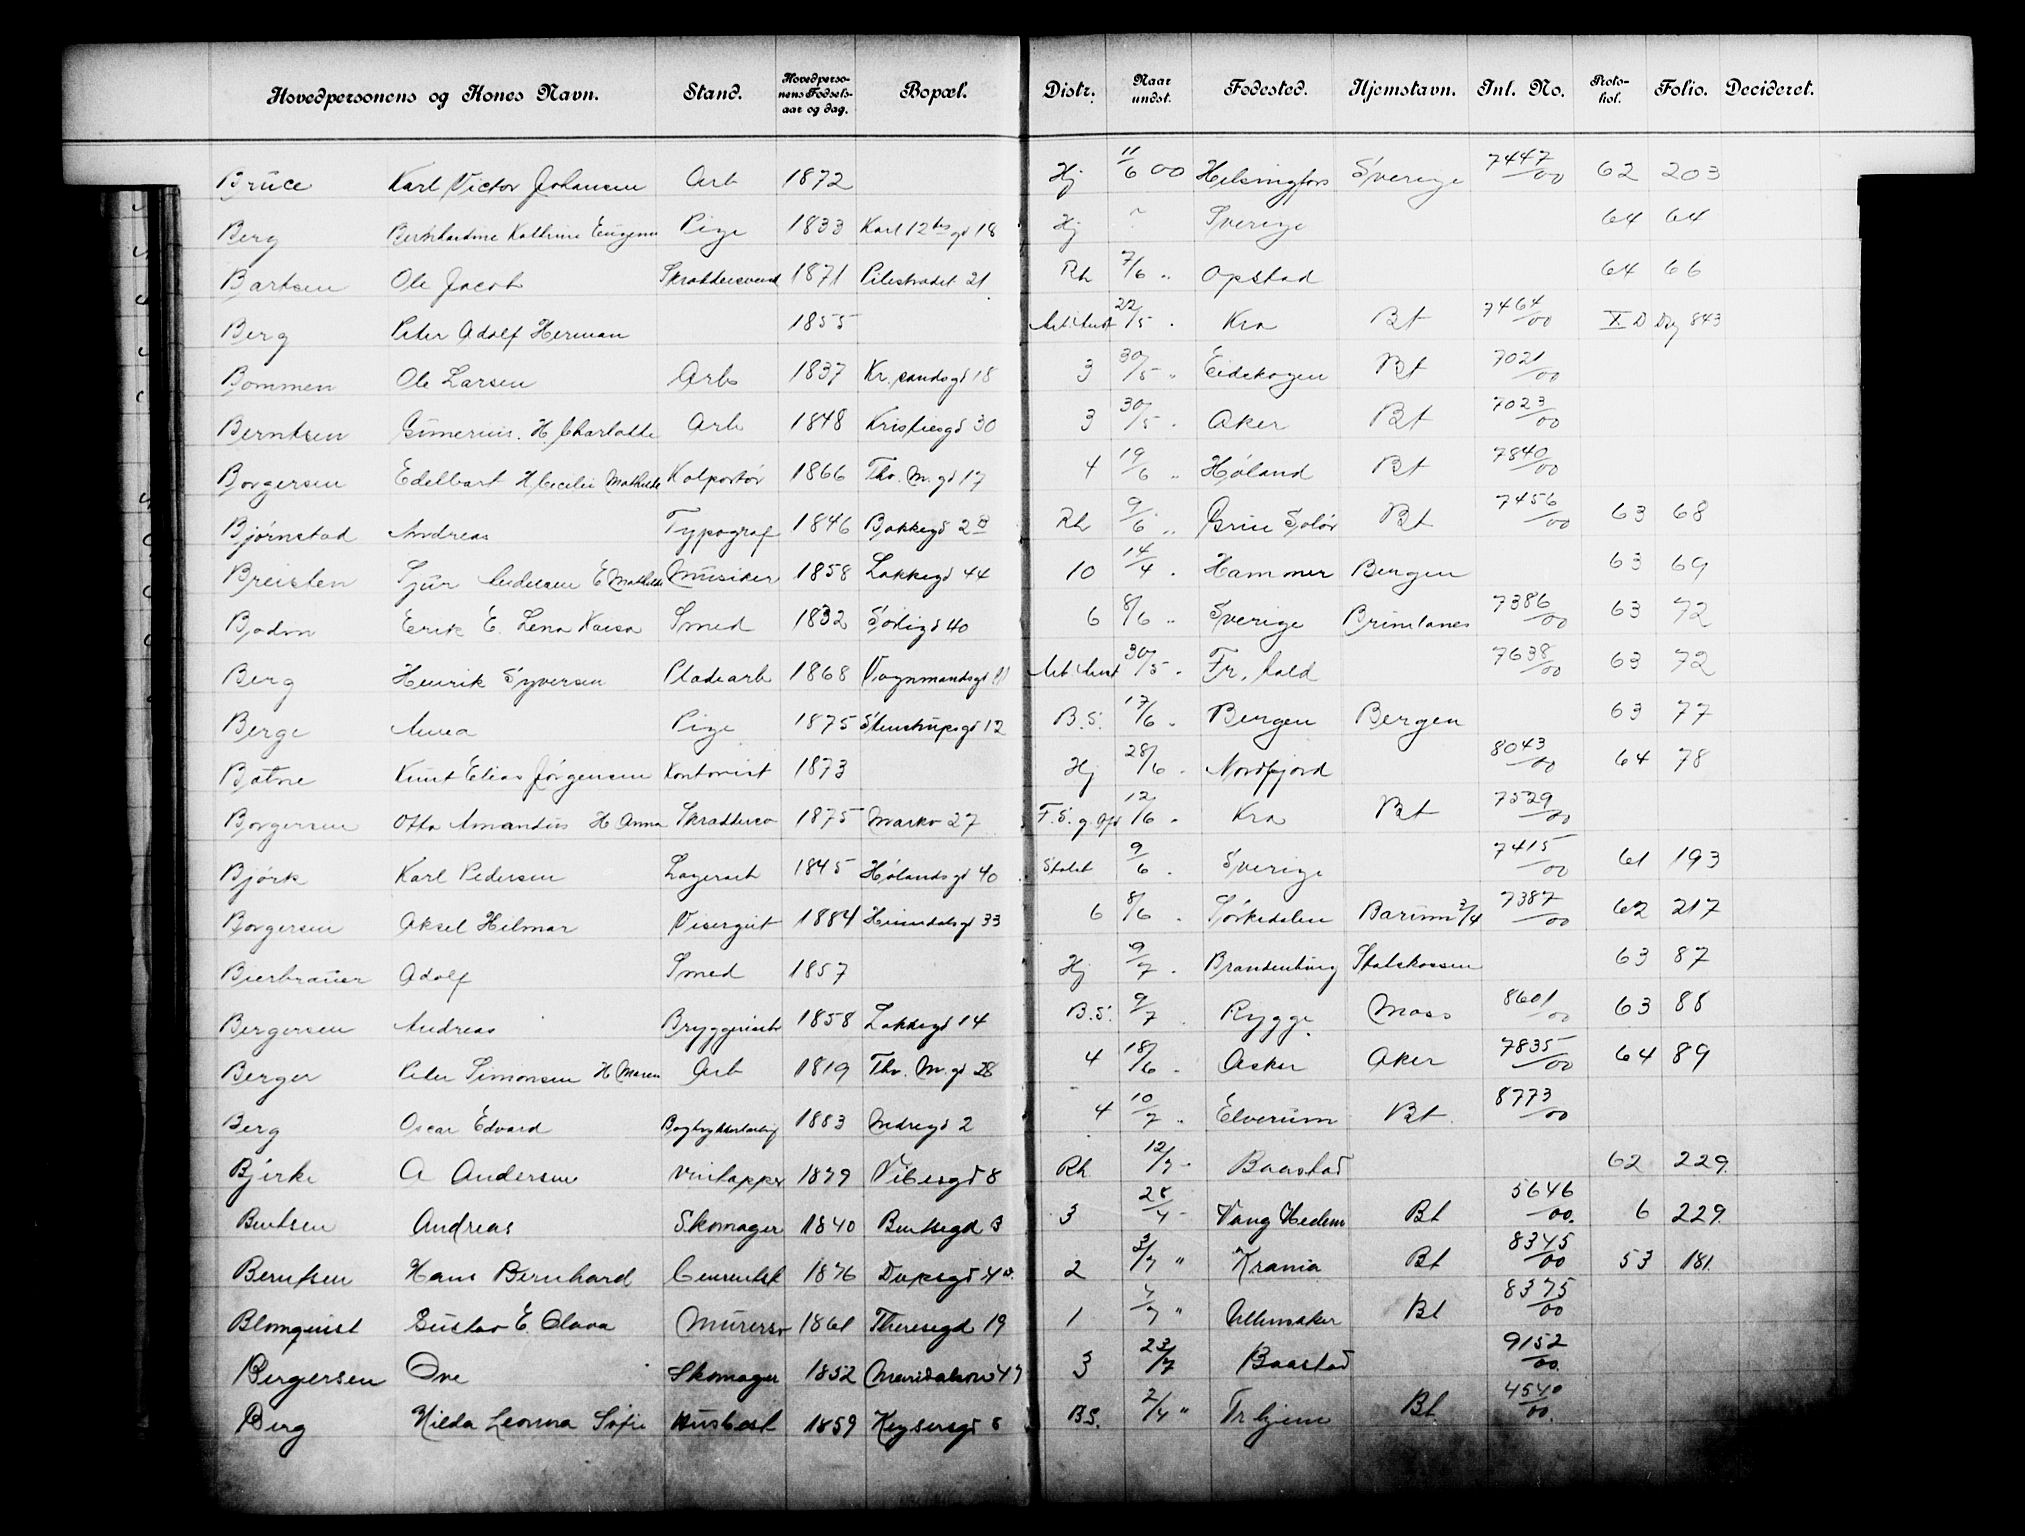 Hovedpersonens og Kones Navn. Stand. Hovedpersonens Fødselsaar og dag. Bopæl. Distr. Naar undst. Fødested. Hjemstavn. Inl. No. Protokol. Folio. Decideret.
Bruce Karl Victor Johansen Arb 1872 Hj 11/6 00 Helsingfors Sverige 7447/00 62 203
Berg Bernhardine Kathrine Eugenie Pige 1833 Karl 12tes gd 18 Hj " Sverige 64 64
Bartsen Ole Jacob Skræddersvend 1871 Pilestrædet 21 Rh 7/6 " Opstad 64 66
Berg Peter Adolf Herman 1855 22/5 " Kra Bt 7464/00 X D Dag 843
Bommen Ole Larsen Arb 1837 Kr.sandsgd 18 3 30/5 " Eidskogen Bt 7021/00
Berntsen Gunerius. H. Charlotte Arb 1848 Kristiesgd 30 3 30/5 " Aker Bt 7023/00
Borgersen Edelbart H Cecilie Mathilde Kolportør 1866 Thv. M. gd 17 4 19/6 " Høland Bt 7840/00
Bjørnstad Andreas Typograf 1846 Bakkegd 2 B Rh 9/6 " Grue Solør Bt 7456/00 63 68
Breisten Sjur Andersen E Mathilde Musiker 1858 Lakkegd 44 10 14/4 " Hammer Bergen 63 69
Bodin Erik E. Lena Kaisa Smed 1832 Sørligd 40 6 8/6 " Sverige Brunlanes 7386/00 63 72
Berg Henrik Syversen Pladearb 1868 Vognmandsgd 11 30/5 " Fr. hald 7638/00 63 72
Berge Anna Pige 1875 Stenstrupsgd 12 B.S. 17/6 " Bergen Bergen 63 77
Bøtne Knut Elias Jørgensen Kontorist 1873 Hj 28/6 " Nordfjord 8043/00 64 78
Borgersen Otto Amandus H Anna Skræddersv 1875 Markv 27 F.S. g. Opf 12/6 " Kra Bt 7529/00
Bjørk Karl Pedersen Lagerarb 1845 Hølandsgd 40 Stalet 9/6 " Sverige 7415/00 61 193
Borgersen Aksel Hilmar Visergut 1884 Heimdalsgd 33 6 8/6 " Sørkedalen Bærum 3/4 7387/00 62 217
Bierbrauer Adolf Smed 1857 Hj 9/7 " Brandenburg Statskassen 63 87
Bergersen Andreas Bryggeriarb 1858 Lakkegd 14 B.S. 9/7 " Rygge Moss 8601/00 63 88
Berger Peter Simonsen H Maren Arb 1819 Thv. M. gd 28 4 18/6 " Asker Aker 7835/00 64 89
Berg Oscar Edvard 1883 Indregd 2 4 10/7 " Elverum Bt 8773/00
Bjerke A Andersen Vintapper 1879 Vibesgd 8 Rh 12/7 " Baastad 62 229.
Berntsen Andreas Skomager 1840 Bentsegd 3 3 28/4 " Vang Hedem Bt 5646/00. 6 229.
Berntsen Hans Bernhard Cementst 1876 Dapsgd 4 B. 2 3/7 " Krania Bt 8345/00 53 181.
Blomquist Gustav E. Olava Murersv 1861 Theresegd 19 1 4/7 " Ullensaker Bt 8375/00
Bergersen Ove Skomager 1852 Maridalsvei 47 3 23/7 Baastad 9152/00.
Berg Hilda Leonna Sofie Husbest 1859 Keysersgd 6 B.S. 2/4 " Tr hjem Bt 4540/00.